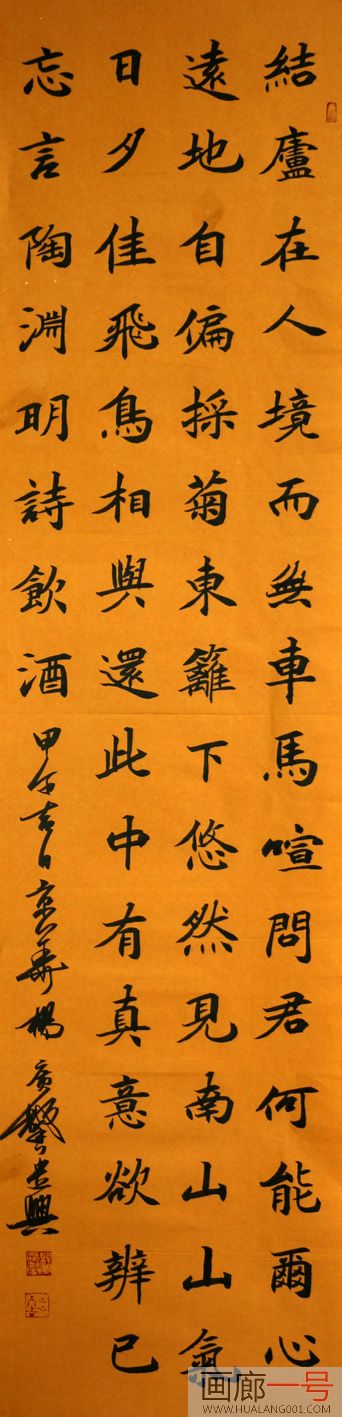 結廬在人境而無車馬喧問君何能爾心
遠地自偏採菊東籬下悠然見南山山氣
日夕佳飛鳥相與還此中有真意欲辨已
忘言陶淵明詩飲酒
甲午吉日京華楊廣
画廊一号
WWW.HUALANG001.COM